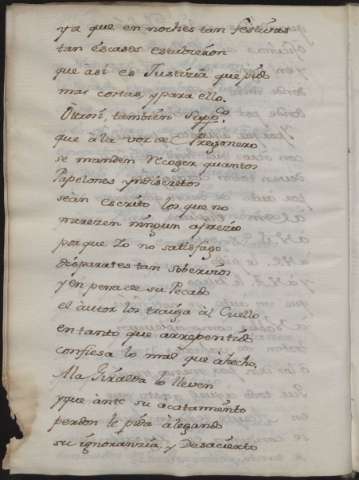 ya que en noches tan festivas
tan escases estubieron
que asi es Justizia que pido
mas cortas, y para ello.
Otrosi, tambien Supp.co
que à la voz de Pregonero
se manden recoger quantos
Papelones yndiscretos
sean escrito los que no
merezen ningun aprezio
porque lo no satisfago
disparates tan soberuios
y en pena de su Pecado
el autor los traiga àl Cuello
en tanto que arrepentido
confiesa lo mal que à hecho.
A la Giralda lo lleven
y que ante su acatamento
perdon le pida àlegando
su ignoranzia, y Desacierto